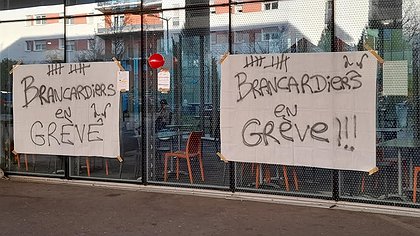 BRANCARDIERS
EN
GRÈVE
BRANCARDIERS
EN
GRÈVE !!!